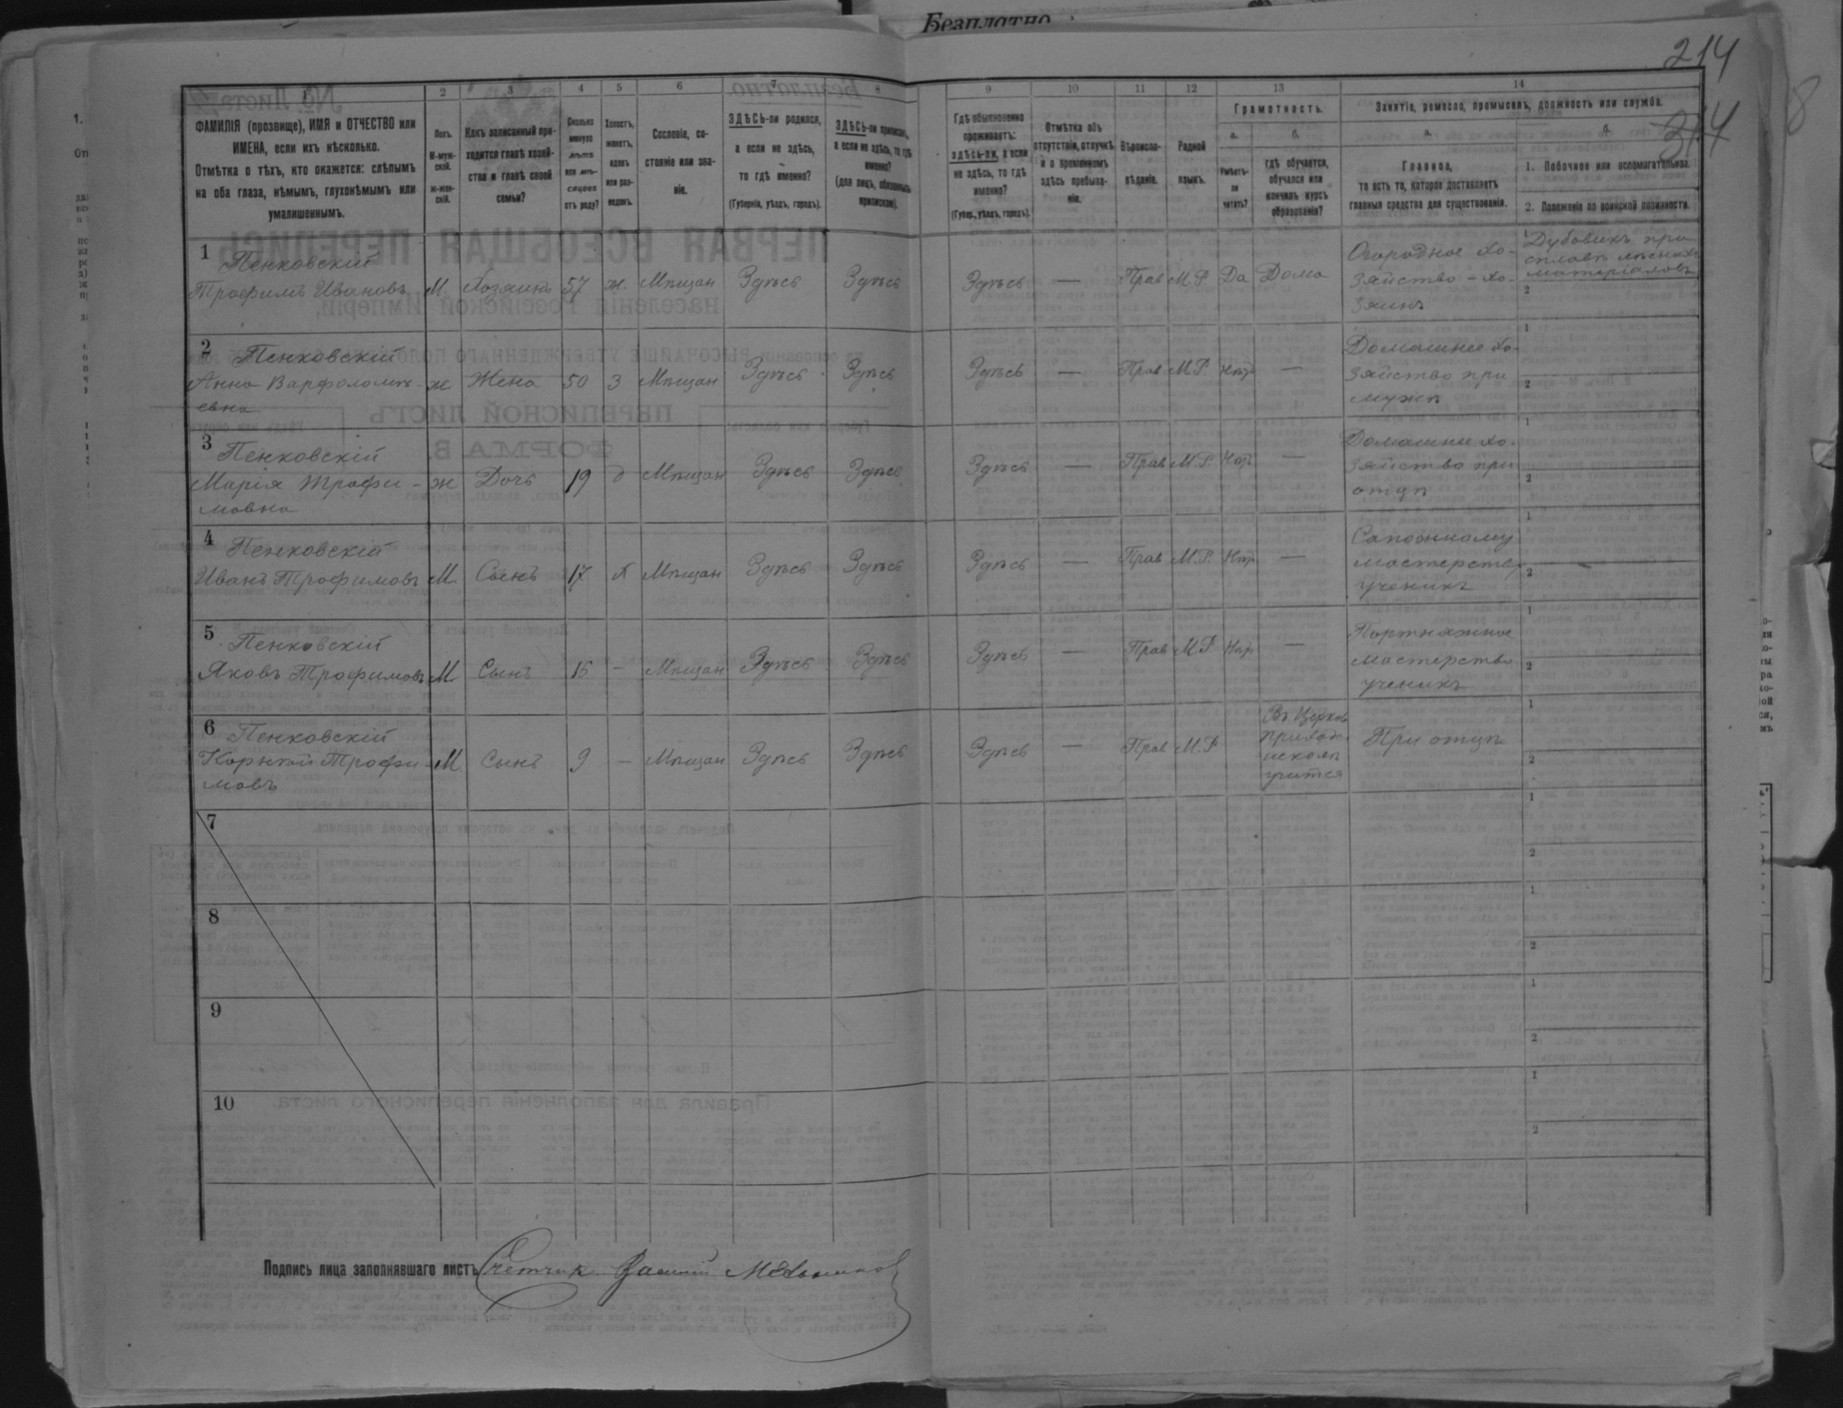 Безплотно
214
314
8
1 2 3 4 5 6 7 8 9 10 11 12 13 14
ФАМИЛІЯ (прозвище), ИМЯ и ОТЧЕСТВО или
ИМЕНА, если ихъ нѣсколько.
Отмѣтка о тѣхъ, кто окажется: слѣпымъ
на оба глаза, нѣмымъ, глухонѣмымъ или
умалишеннымъ.
Полъ.
М-муж-
ской.
ж-жен-
скій.
Какъ записанный при-
ходится главѣ хозяй-
ства и главѣ своей
семьи?
Сколько
минуло
лѣтъ
или мѣ-
сяцевъ
отъ роду?
Холостъ,
женатъ,
вдовъ
или раз-
веденъ.
Сословіе, со-
стояніе или зва-
ніе.
ЗДѢСЬ-ли родился,
а если не здѣсь,
то гдѣ именно?
(Губернія, уѣздъ, городъ).
ЗДѢСЬ-ли приписанъ,
а если не здѣсь, то гдѣ
именно?
(для лицъ, обязанныхъ
припиской).
Гдѣ обыкновенно
проживаетъ:
здѣсь-ли, а если
не здѣсь, то гдѣ
именно?
(Губер., уѣздъ, городъ).
Отмѣтка объ
отсутствіи, отлучкѣ
и о временномъ
здѣсь пребыва-
ніи.
Вѣроиспо-
вѣданіе.
Родной
языкъ.
Грамотность.
а. б.
Умѣетъ-
ли
читать?
гдѣ обучается,
обучался или
кончилъ курсъ
образованія?
Занятіе, ремесло, промыселъ, должность или служба.
а. б.
Главное,
то есть то, которое доставляетъ
главныя средства для существованія.
1. Побочное или вспомагательное.
2. Положеніе по воинской повинности.
1 Пенковскій
Трофимъ Ивановъ М Хозяинъ 57 ж. Мѣщан Здѣсь Здѣсь Здѣсь — Прав М.Р. Да Дома
Огородное хо-
зяйство - хо-
зяинъ
Дубовикъ при
сплавѣ лѣсныхъ
матеріаловъ
2 Пенковскій
Анна Варфоломѣ-
евна ж Жена 50 З Мѣщан Здѣсь Здѣсь Здѣсь — Прав М.Р. —
Домашнее хо-
зяйство при
мужѣ
3 Пенковскій
Марія Трофи-
мовна ж Дочь 19 д Мѣщан Здѣсь Здѣсь Здѣсь — Прав М.Р. —
Домашнее хо-
зяйство при
отцѣ
4 Пенковскій
Иванъ Трофимовъ М Сынъ 17 х Мѣщан Здѣсь Здѣсь Здѣсь — Прав М.Р. —
Сапожному
мастерству
ученикъ
5 Пенковскій
Яковъ Трофимовъ М Сынъ 15 — Мѣщан Здѣсь Здѣсь Здѣсь — Прав М.Р. —
Портняжное
мастерство
ученикъ
6 Пенковскій
Корнѣй Трофи-
мовъ М Сынъ 9 — Мѣщан Здѣсь Здѣсь Здѣсь — Прав М.Р.
Въ Церков
приход.
школѣ
учится
При отцѣ
7
8
9
10
Подпись лица заполнявшаго листъ Счетчик Василий Мельников